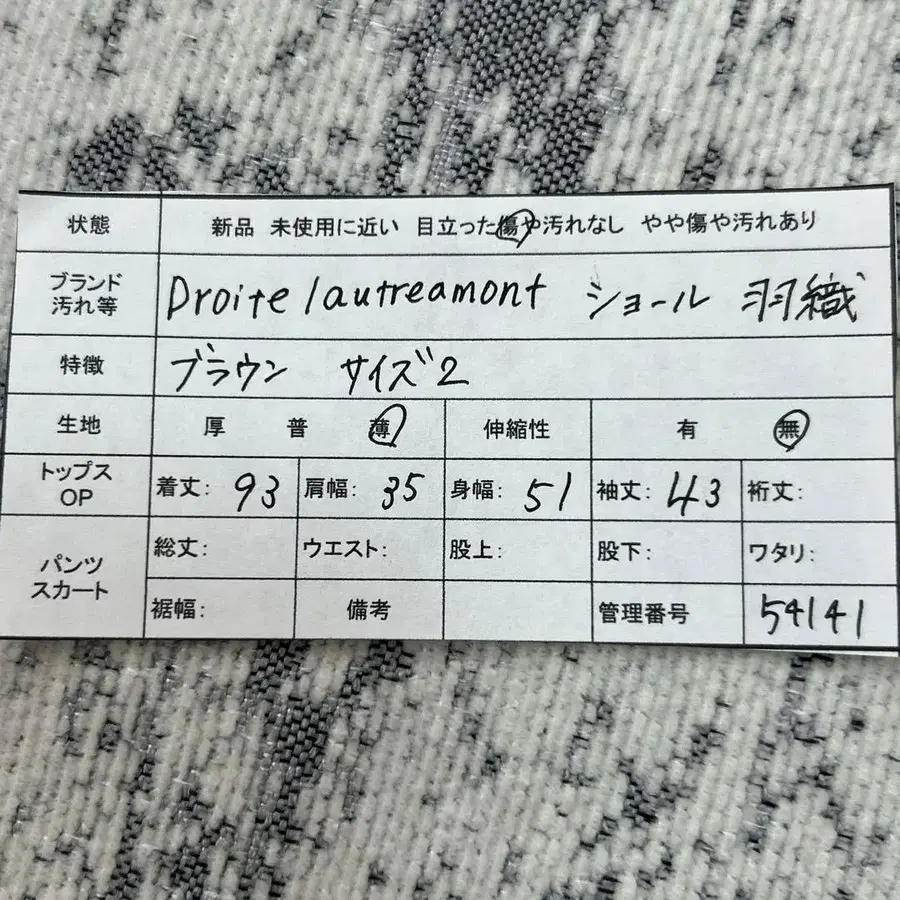 状態 新品 未使用に近い 目立った傷や汚れなし やや傷や汚れあり
ブランド
汚れ等 Droite lautreamont ショール 羽織
特徴 ブラウン サイズ2
生地 厚 普 薄 伸縮性 有 無
トップス
OP 着丈: 93 肩幅: 35 身幅: 51 袖丈: 43 裄丈:
パンツ
スカート 総丈: ウエスト: 股上: 股下: ワタリ:
裾幅: 備考 管理番号 54141